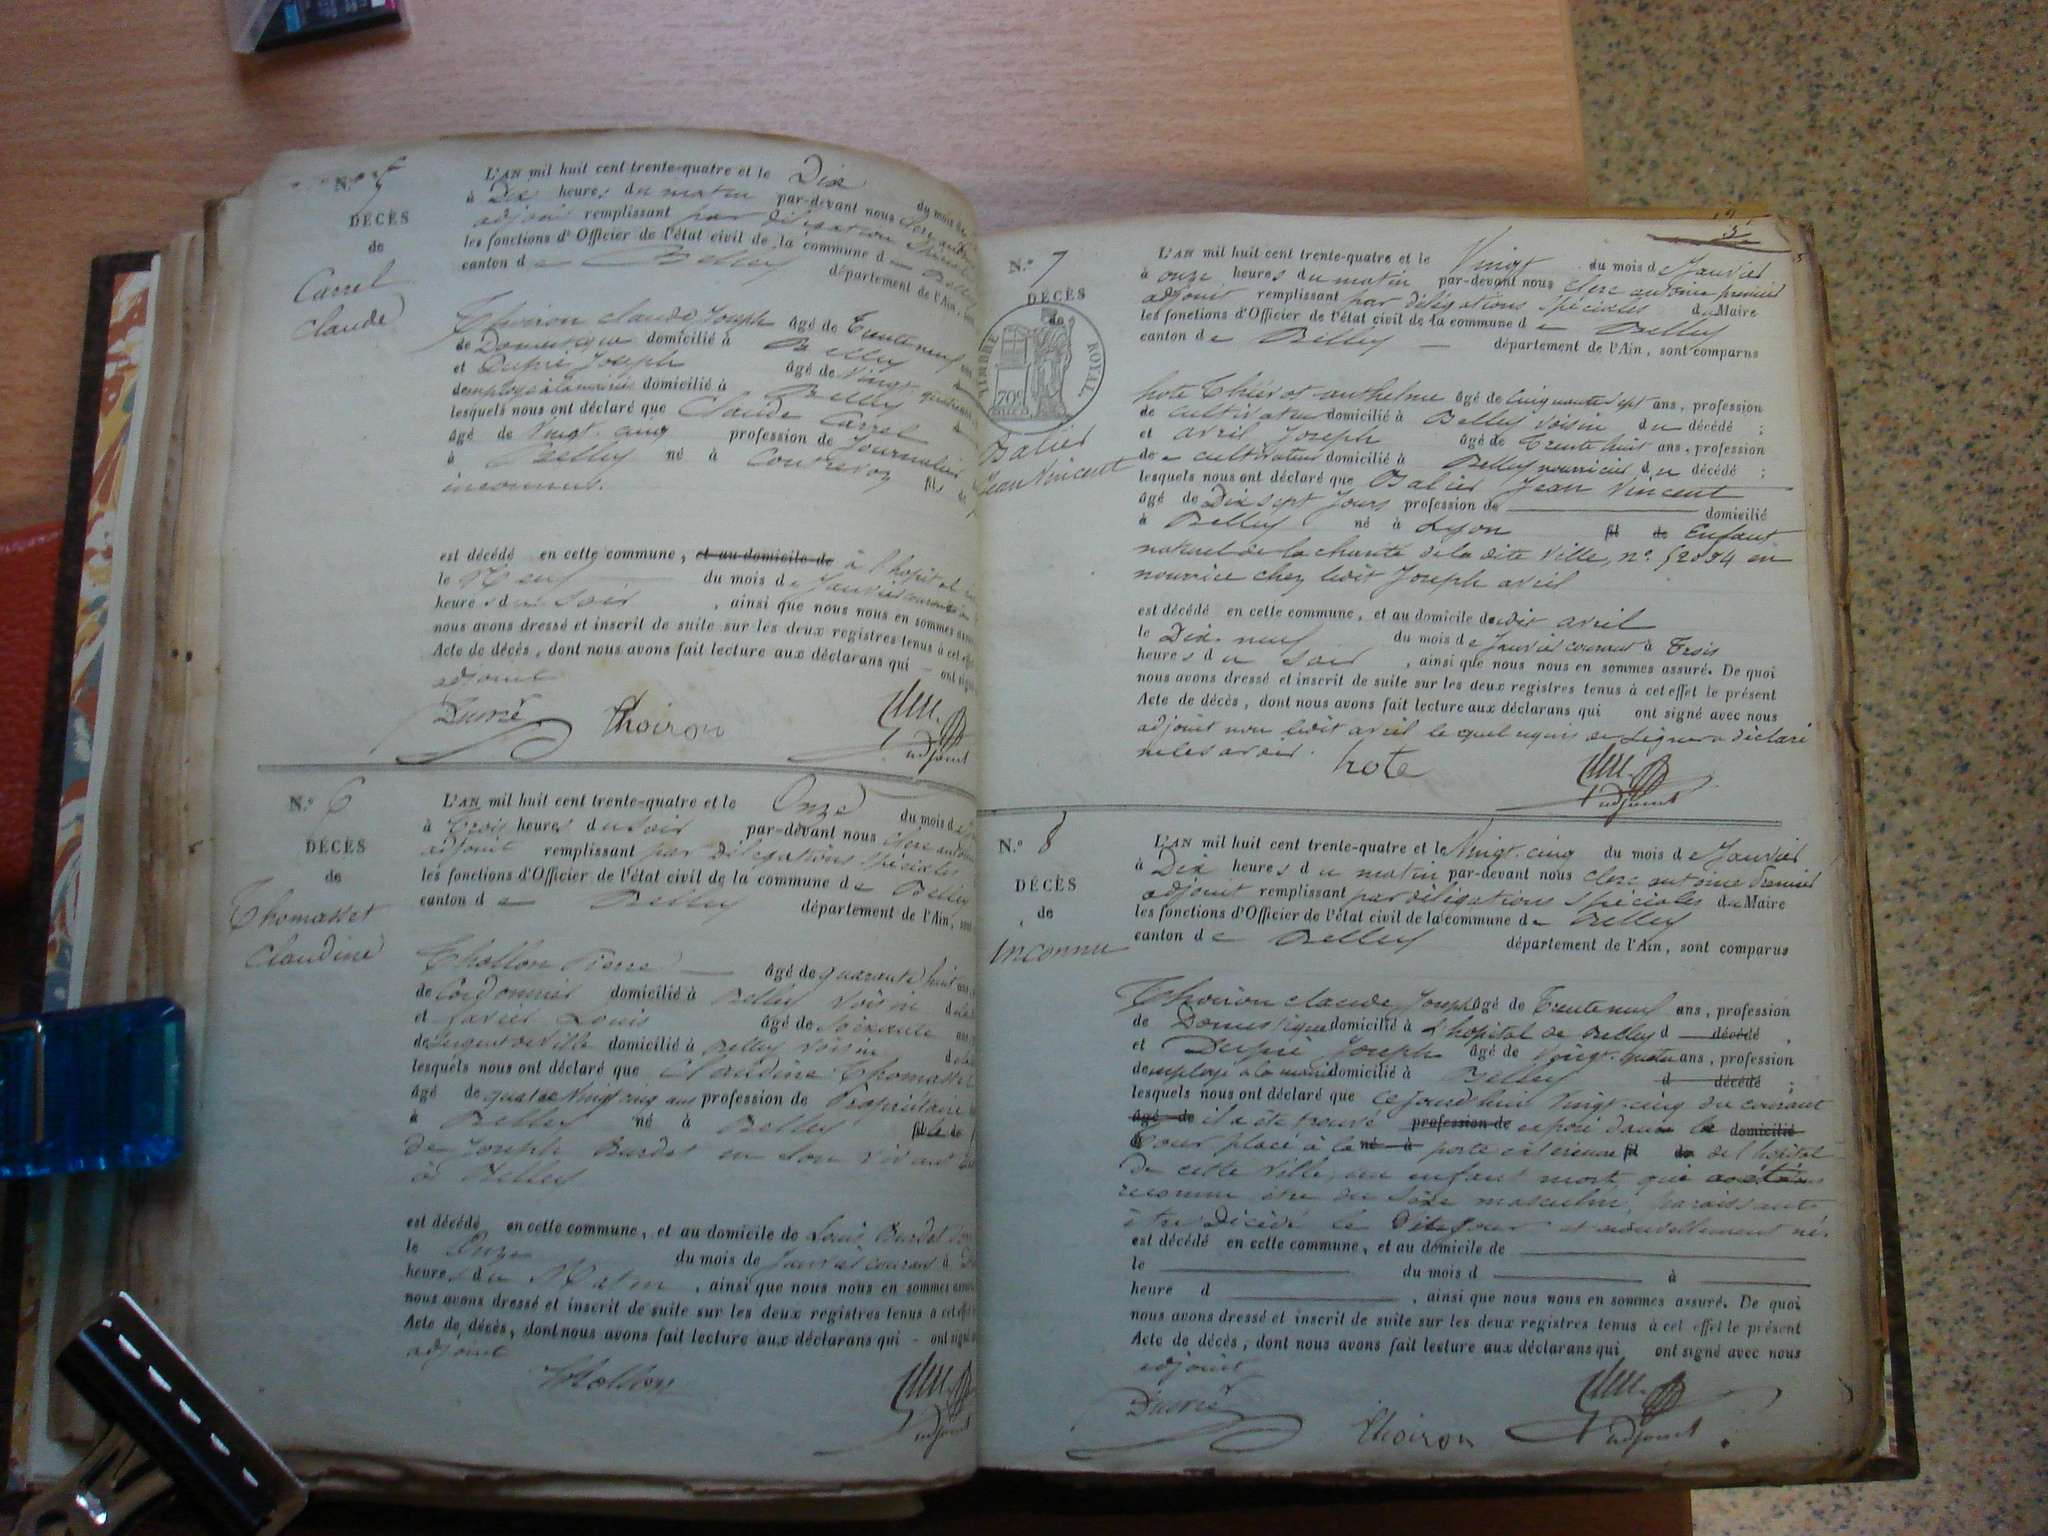 N.º 5
DÉCÈS
de
Carrel
Claude
L'AN mil huit cent trente-quatre et le Dix du mois de
à Dix heures du matin par-devant nous Clerc
adjoint remplissant par délégation
les fonctions d'Officier de l'état civil de la commune de Belley
canton de Belley département de l'Ain,
Thoiron Claude Joseph âgé de Trente neuf
de Domestique domicilié à Belley
et Dupré Joseph âgé de Vingt quatre
d'employé à la mairie domicilié à Belley
lesquels nous ont déclaré que Claude Carrel
âgé de Vingt cinq profession de Journalier
à Belley né à Contrevoz fils de
inconnus.
est décédé en cette commune, et au domicile de à l'hopital
le Neuf du mois de Janvier courant
heures du soir, ainsi que nous nous en sommes
nous avons dressé et inscrit de suite sur les deux registres tenus à cet effet
Acte de décès, dont nous avons fait lecture aux déclarans qui — ont signé
adjoint
Dupré Thoiron
adjoint
N.º 6
DÉCÈS
de
Thomasset
Claudine
L'AN mil huit cent trente-quatre et le Onze du mois de
à Trois heures du soir par-devant nous Clerc antoine
adjoint remplissant par délégations spéciales
les fonctions d'Officier de l'état civil de la commune de Belley
canton de Belley département de l'Ain,
Thollon Pierre âgé de quarante huit ans
de Cordonnier domicilié à Belley voisin de la
et Louis âgé de soixante ans
de Sergent de Ville domicilié à Belley voisin de la
lesquels nous ont déclaré que Claudine Thomasset
âgé de quatre Vingt cinq ans profession de Propriétaire
à Belley né à Belley fil de
de Joseph Burdet en son vivant
à Belley
est décédé en cette commune, et au domicile de Louis Burdet
le Onze du mois de Janvier courant à
heures du Matin, ainsi que nous nous en sommes assuré
nous avons dressé et inscrit de suite sur les deux registres tenus à cet effet
Acte de décès, dont nous avons fait lecture aux déclarans qui — ont signé
adjoint
Thollon
adjoint
N.º 7
DÉCÈS
de
TIMBRE ROYAL
70c
Balier
Jean Vincent
L'AN mil huit cent trente-quatre et le Vingt du mois de Janvier
à onze heures du matin par-devant nous Clerc antoine premier
adjoint remplissant par délégations spéciales du Maire
les fonctions d'Officier de l'état civil de la commune de Belley
canton de Belley département de l'Ain, sont comparus
hote anthelme âgé de Cinquante sept ans, profession
de cultivateur domicilié à Belley voisin du décédé;
et avril Joseph âgé de Trente huit ans, profession
de cultivateur domicilié à Belley nourricier du décédé;
lesquels nous ont déclaré que Balier Jean Vincent
âgé de Dix sept Jours profession de domicilié
à Belley né à Lyon fil de Enfant
naturel de la charité de la dite Ville, n.º 52034 en
nourrice chez ledit Joseph avril
est décédé en cette commune, et au domicile dudit avril
le Dix-neuf du mois de Janvier courant à Trois
heures du soir, ainsi que nous nous en sommes assuré. De quoi
nous avons dressé et inscrit de suite sur les deux registres tenus à cet effet le présent
Acte de décès, dont nous avons fait lecture aux déclarans qui ont signé avec nous
adjoint non ledit avril le quel requis de signer a déclaré
ne le savoir.
hote
adjoint
N.º 8
DÉCÈS
de
Inconnu
L'AN mil huit cent trente-quatre et le Vingt-cinq du mois de Janvier
à Dix heures du matin par-devant nous Clerc antoine Premier
adjoint remplissant par délégations spéciales du Maire
les fonctions d'Officier de l'état civil de la commune de Belley
canton de Belley département de l'Ain, sont comparus
Thoiron claude Joseph âgé de Trente neuf ans, profession
de Domestique domicilié à l'hopital de Belley d décédé
et Dupré Joseph âgé de Vingt-quatre ans, profession
d'employé à la mairie domicilié à Belley d décédé;
lesquels nous ont déclaré que Cejourd'hui Vingt-cinq du courant
âgé de il a été trouvé profession de exposé dans le domicilié
tour placé à la né à porte extérieure fil de de l'hôpital
de cette Ville, un enfant mort, que
reconnu être du sexe masculin, paraissant
être décédé le dit jour et nouvellement né.
est décédé en cette commune, et au domicile de
le du mois d à
heure d, ainsi que nous nous en sommes assuré. De quoi
nous avons dressé et inscrit de suite sur les deux registres tenus à cet effet le présent
Acte de décès, dont nous avons fait lecture aux déclarans qui ont signé avec nous
adjoint
Dupré Thoiron
adjoint